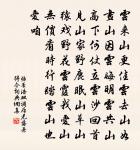 雲來山更佳雲去山如
畫山因雲晦明雲共山
高下倚杖立雲沙回首
見山家野鹿眠山草山
猿戲野花雲霞我愛山
無價看時行踏雲山也
愛咱